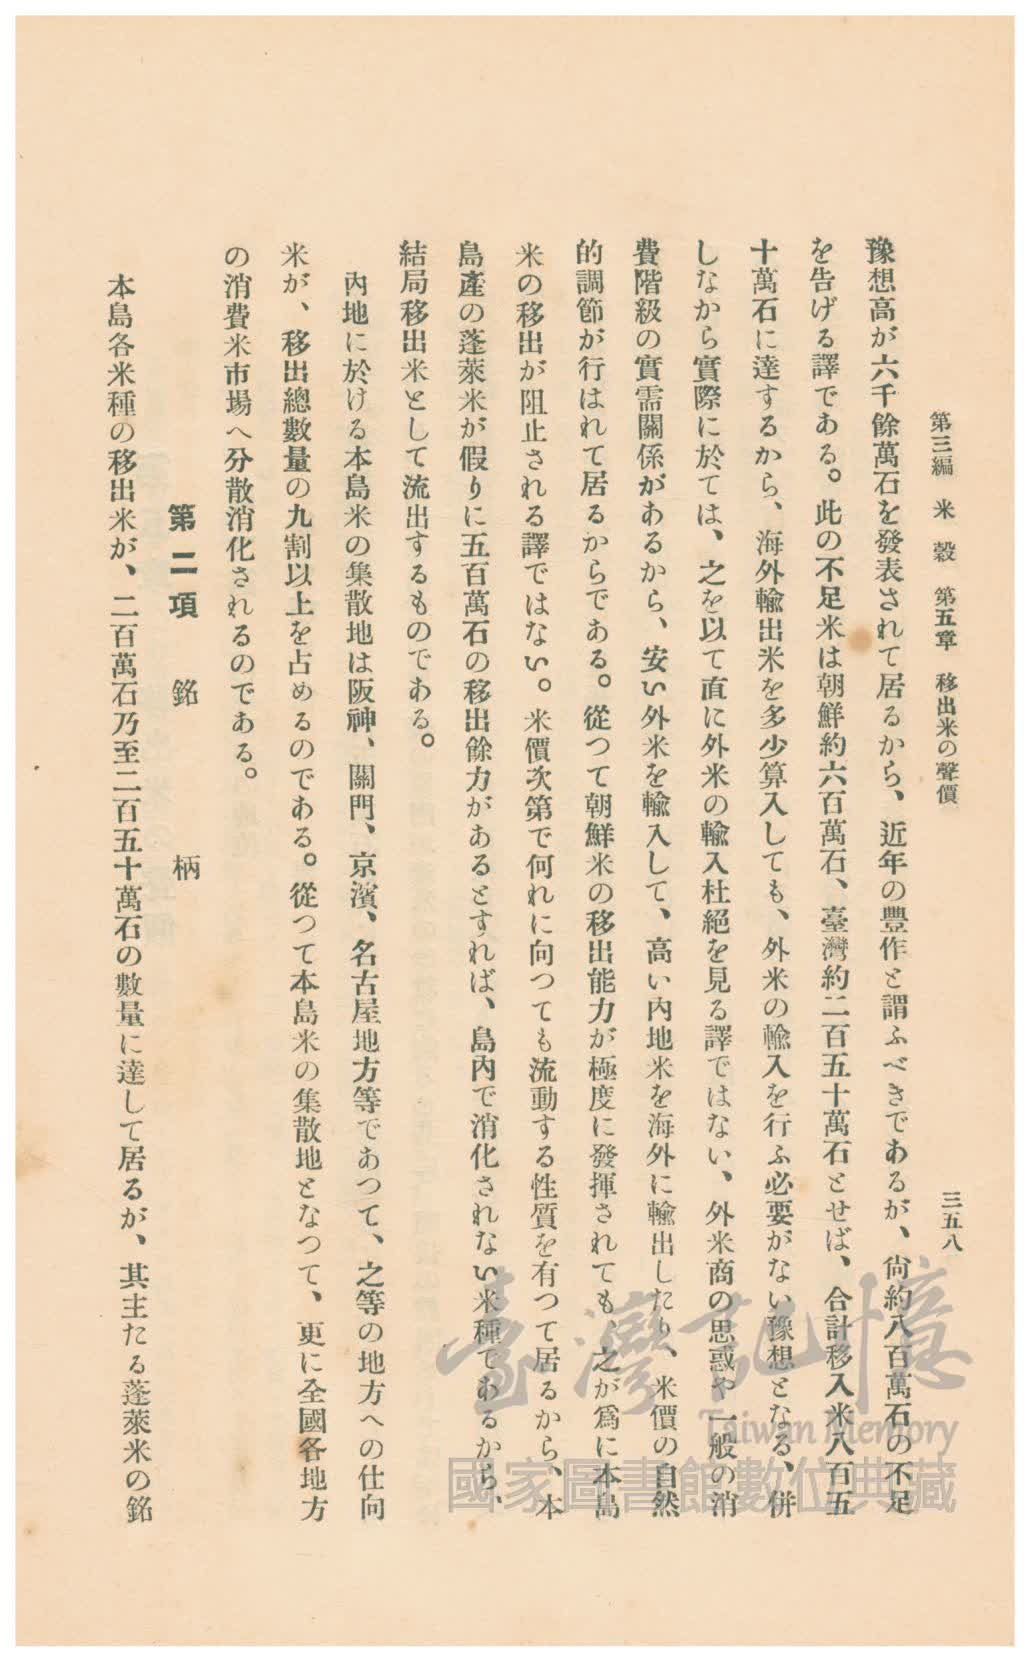 第三編　米　穀　第五章　移出米の聲價　三五八
豫想高が六千餘萬石を發表されて居るから、近年の豐作と謂ふべきであるが、尙約八百萬石の不足
を告げる譯である。此の不足米は朝鮮約六百萬石、臺灣約二百五十萬石とせば、合計移入米八百五
十萬石に達するから、海外輸出米を多少算入しても、外米の輸入を行ふ必要がない豫想となる、併
しなから實際に於ては、之を以て直に外米の輸入杜絕を見る譯ではない、外米商の思惑や一般の消
費階級の實需關係があるから、安い外米を輸入して、高い內地米を海外に輸出したり、米價の自然
的調節が行はれて居るからである。從つて朝鮮米の移出能力が極度に發揮されても、之が爲に本島
米の移出が阻止される譯ではない。米價次第で何れに向つても流動する性質を有つて居るから、本
島產の蓬萊米が假りに五百萬石の移出餘力があるとすれば、島內で消化されない米種であるから、
結局移出米として流出するものである。
內地に於ける本島米の集散地は阪神、關門、京濱、名古屋地方等であつて、之等の地方への仕向
米が、移出總數量の九割以上を占めるのである。從つて本島米の集散地となつて、更に全國各地方
の消費米市場へ分散消化されるのである。
第二項　銘　柄
本島各米種の移出米が、二百萬石乃至二百五十萬石の數量に達して居るが、其主たる蓬萊米の銘
臺灣記憶
Taiwan Memory
國家圖書館數位典藏